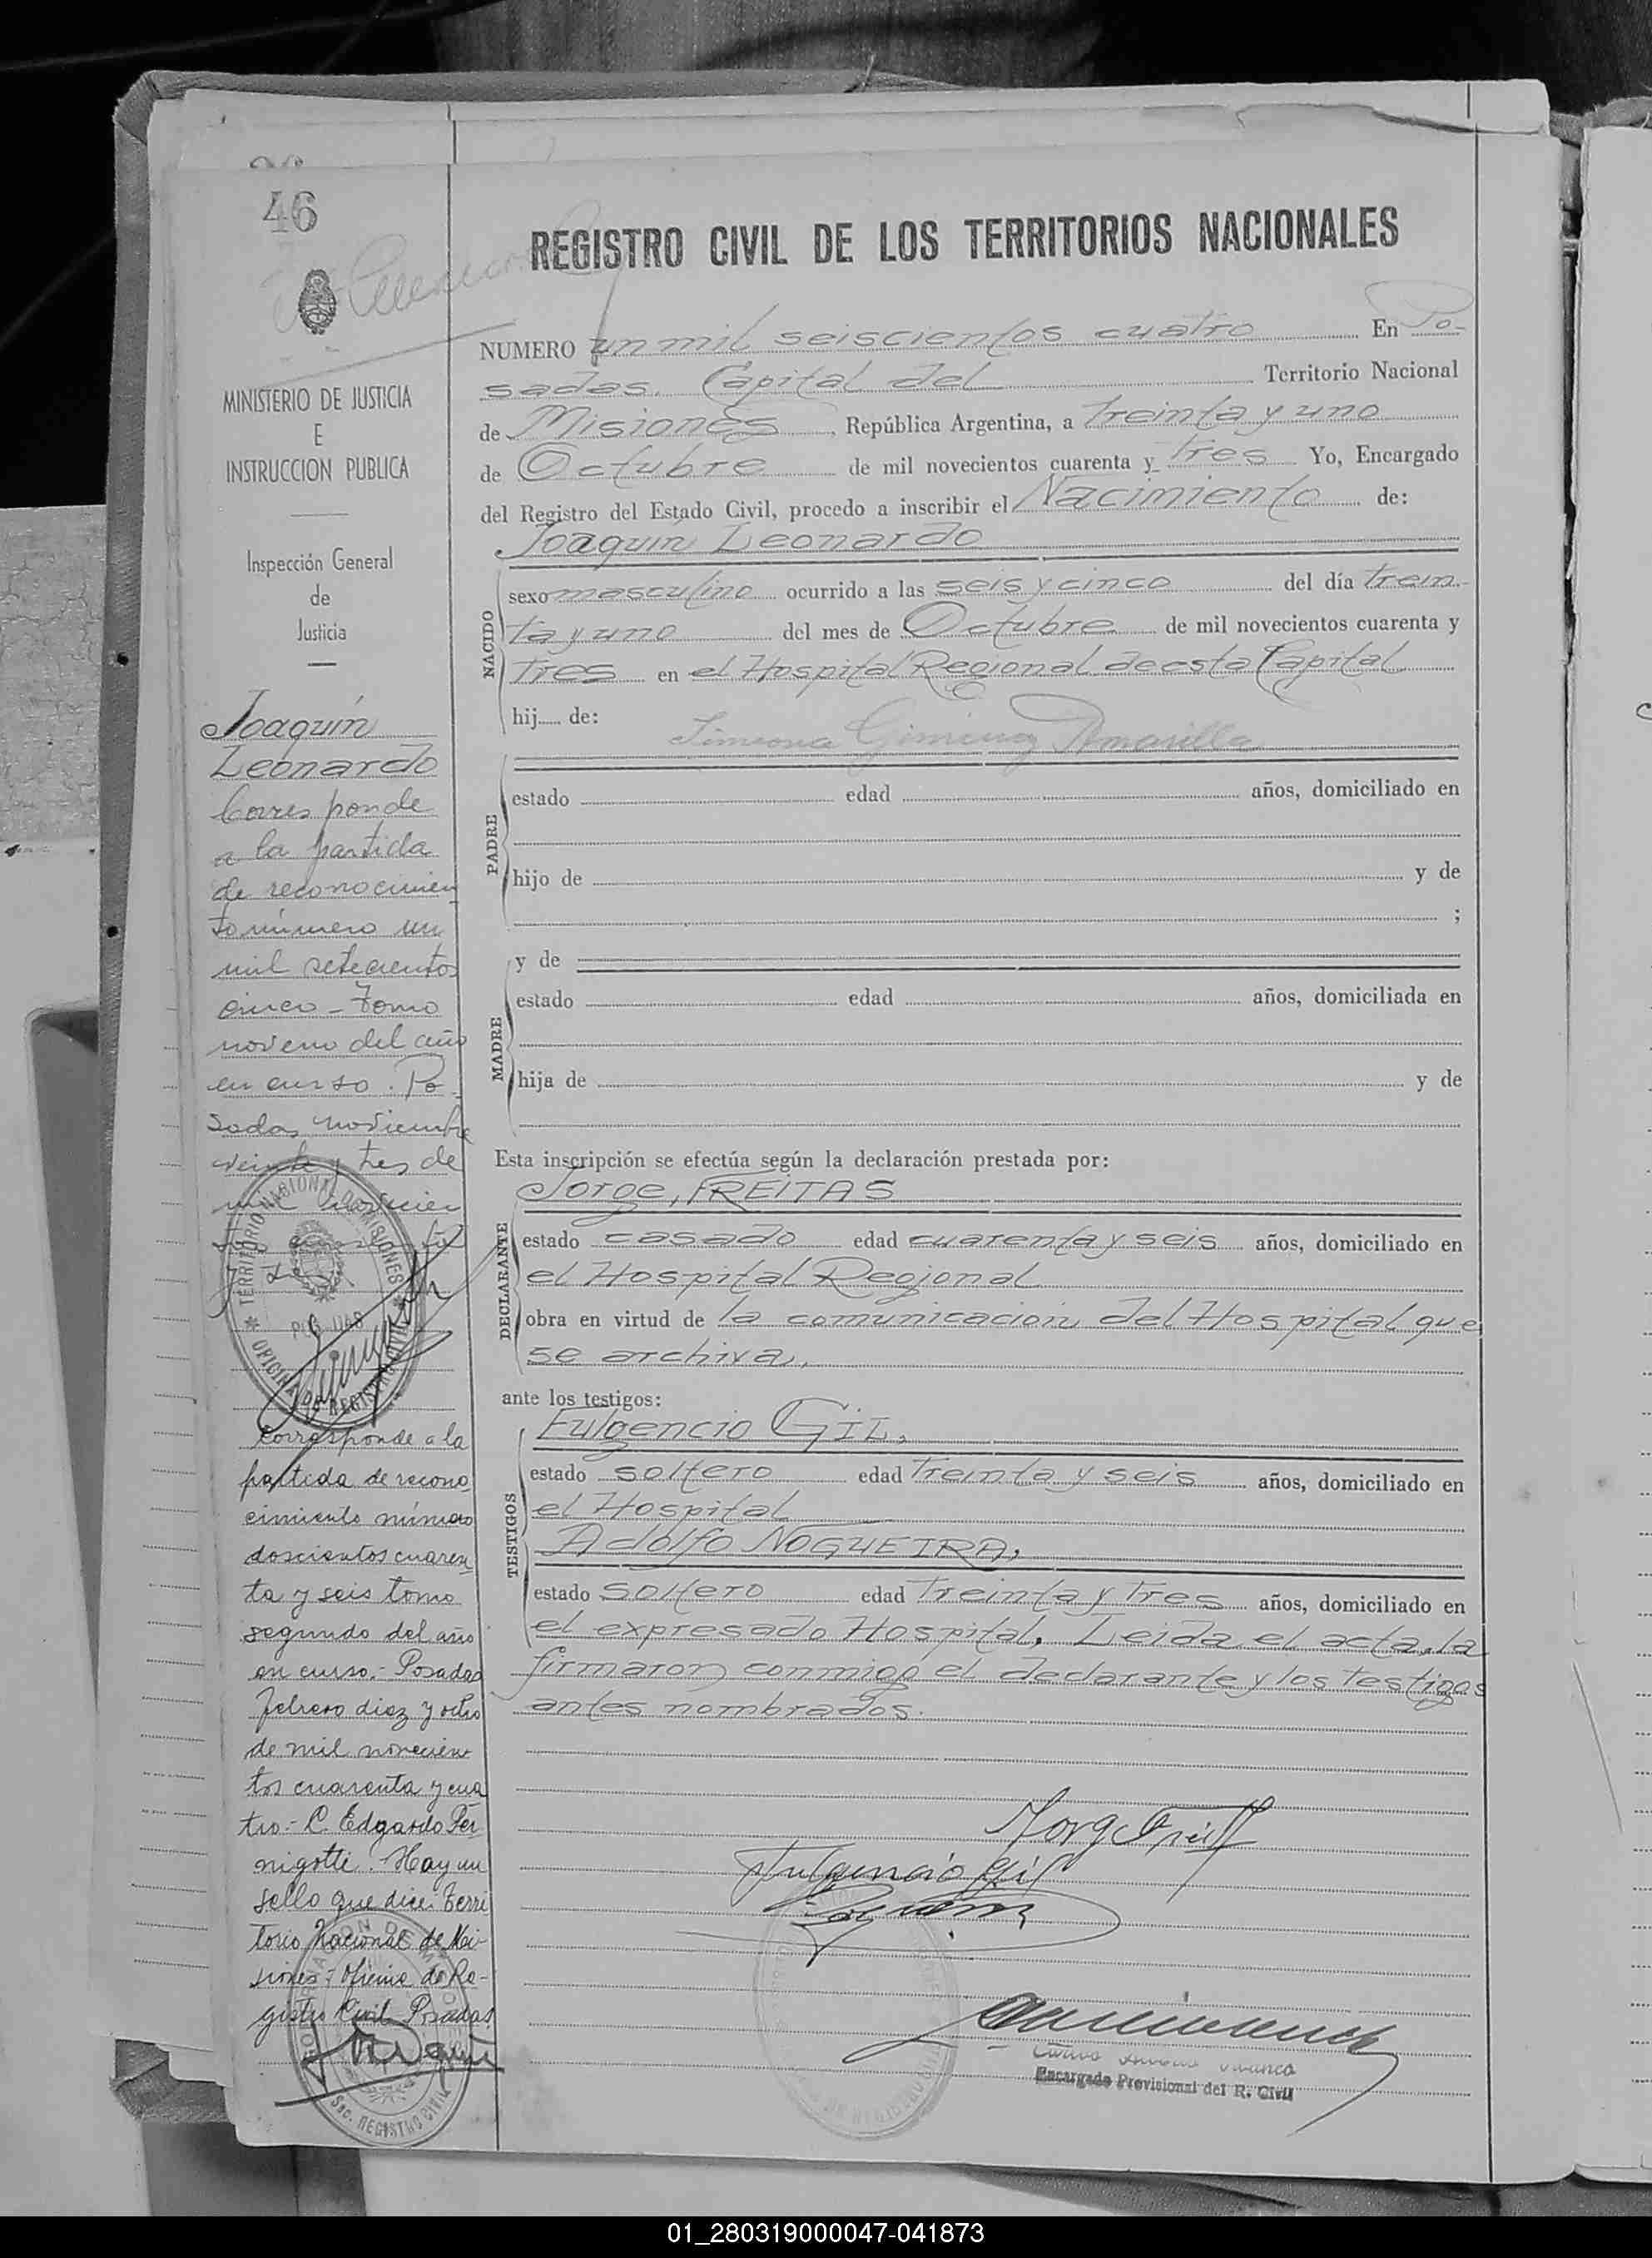 46
REGISTRO CIVIL DE LOS TERRITORIOS NACIONALES
NUMERO un mil seiscientos cuatro En Po-
sadas. Capital del Territorio Nacional
de Misiones, República Argentina, a treinta y uno
de Octubre de mil novecientos cuarenta y tres Yo, Encargado
del Registro del Estado Civil, procedo a inscribir el Nacimiento de:
Joaquín Leonardo
NACIDO
sexo masculino ocurrido a las seis y cinco del día trein-
ta y uno del mes de Octubre de mil novecientos cuarenta y
tres en el Hospital Regional de esta Capital
hij de:
Simeona Gimenez Amarilla
PADRE
estado edad años, domiciliado en
hijo de y de
;
y de
MADRE
estado edad años, domiciliada en
hija de y de
Esta inscripción se efectúa según la declaración prestada por:
Jorge, FREITAS
DECLARANTE
estado casado edad cuarenta y seis años, domiciliado en
el Hospital Regional
obra en virtud de la comunicacion del Hospital que
se archiva.
ante los testigos:
Fulgencio GIL,
TESTIGOS
estado soltero edad treinta y seis años, domiciliado en
el Hospital
Adolfo NOGUEIRA,
estado soltero edad treinta y tres años, domiciliado en
el expresado Hospital. Leida el acta, la
firmaron conmigo el declarante y los testigos
antes nombrados.
Jorge Freit
Fulgencio Gil
Encargado Provisional del R. Civil
MINISTERIO DE JUSTICIA
E
INSTRUCCION PUBLICA
Inspección General
de
Justicia
Joaquín
Leonardo
Corresponde
a la partida
de reconocimien
to número un
mil setecientos
cinco - Tomo
noveno del año
en curso. Po
sadas, noviembre
veinte y tres de
mil novecien
y tres
TERRITORIO NACIONAL MISIONES
POSADAS
OFICINA DE REGISTRO CIVIL
Corresponde a la
partida de recono
cimiento número
doscientos cuaren
ta y seis tomo
segundo del año
en curso.- Posadas
febrero diez y ocho
de mil novecien
tos cuarenta y cua
tro.- C. Edgardo Per
nigotti. Hay un
sello que dice: Terri
torio Nacional de Mi-
siones - Oficina de Re-
gistro Civil Posadas.
REGISTRO CIVIL
01_280319000047-041873